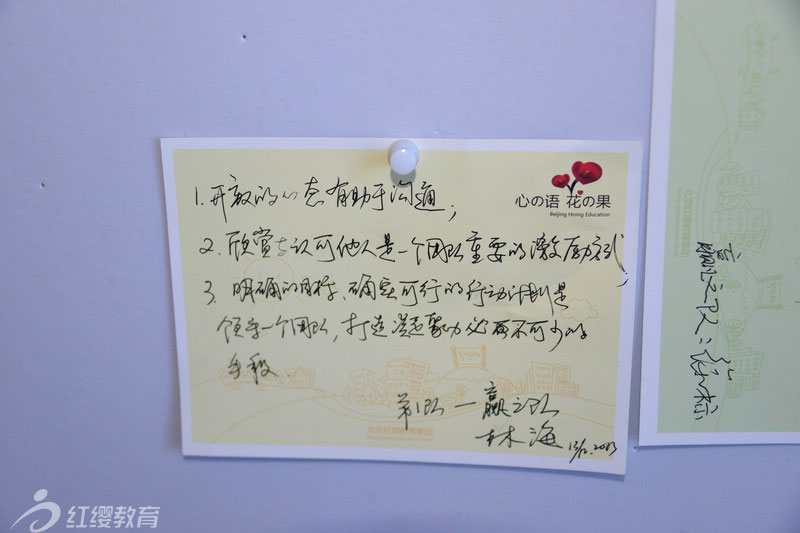 心の语 花の果
Beijing Hoing Education
1.开敞的心态有助于沟通；
2.欣赏与认可他人是一个团队重要的激励方式；
3.明确的目标、确实可行的行动计划是
领导一个团队，打造凝聚力必不可少的
手段.
第1队—赢之队
林海 13/12.2013
北京红缨教育集团
Beijing Hoing Education Group
赢之队：
红缨教育